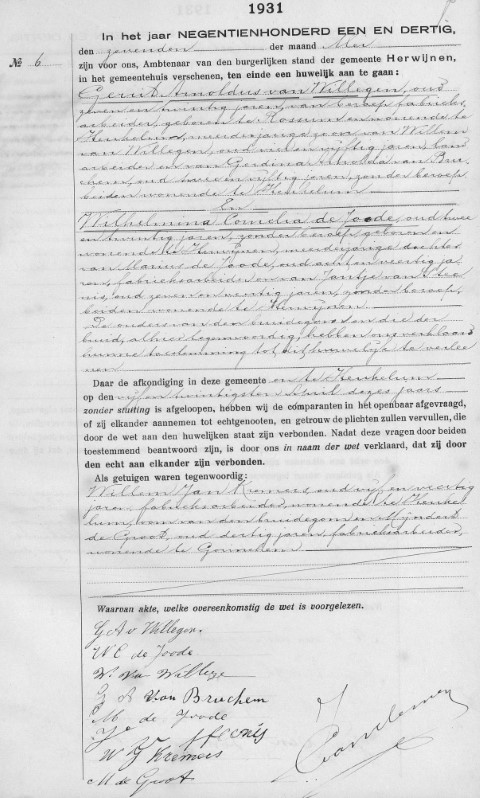 1931
In het jaar NEGENTIENHONDERD EEN EN DERTIG,
№ 6
den zevenden der maand Mei
zijn voor ons, Ambtenaar van den burgerlijken stand der gemeente Herwijnen,
in het gemeentehuis verschenen, ten einde een huwelijk aan te gaan:
Gerrit Arnoldus van Willegen, oud
zeven en twintig jaren, van beroep fabrieks
arbeider, geboren te Rossum en wonende te
Heukelum, meerderjarige zoon van Willem
van Willegen, oud en vijftig jaren,
arbeider en van Gerdina van Bru
chem, oud twee en vijftig jaren, zonder beroep,
beiden wonende te Heukelum
En
Wilhelmina Cornelia de Joode, oud twee
en twintig jaren, zonder beroep, geboren en
wonende te Herwijnen, meerderjarige dochter
van Marius de Joode, oud acht en veertig ja
ren, fabrieksarbeider en van Jantje van
nis, oud zeven en veertig jaren, zonder beroep,
beiden wonende te Herwijnen.
De ouders van den bruidegom en die der
bruid, alhier tegenwoordig, hebben ons verklaard
hunne toestemming tot dit huwelijk te verlee
nen
Daar de afkondiging in deze gemeente en te Heukelum
op den vijf en twintigsten April dezes jaars
zonder stuiting is afgeloopen, hebben wij de comparanten in het openbaar afgevraagd,
of zij elkander aannemen tot echtgenooten, en getrouw de plichten zullen vervullen, die
door de wet aan den huwelijken staat zijn verbonden. Nadat deze vragen door beiden
toestemmend beantwoord zijn, is door ons in naam der wet verklaard, dat zij door
den echt aan elkander zijn verbonden.
Als getuigen waren tegenwoordig:
Willem Jan Kremers oud vijf en veertig
jaren, fabrieksarbeider, wonende te Heuke
lum, oom van den bruidegom en Mijndert
de Groot, oud dertig jaren, fabrieksarbeider,
wonende te Gorinchem
Waarvan akte, welke overeenkomstig de wet is voorgelezen.
G A v Willegen.
W C de Joode
W. van Willege
G A van Bruchem
M de Joode
W J Kremers
M de Groot